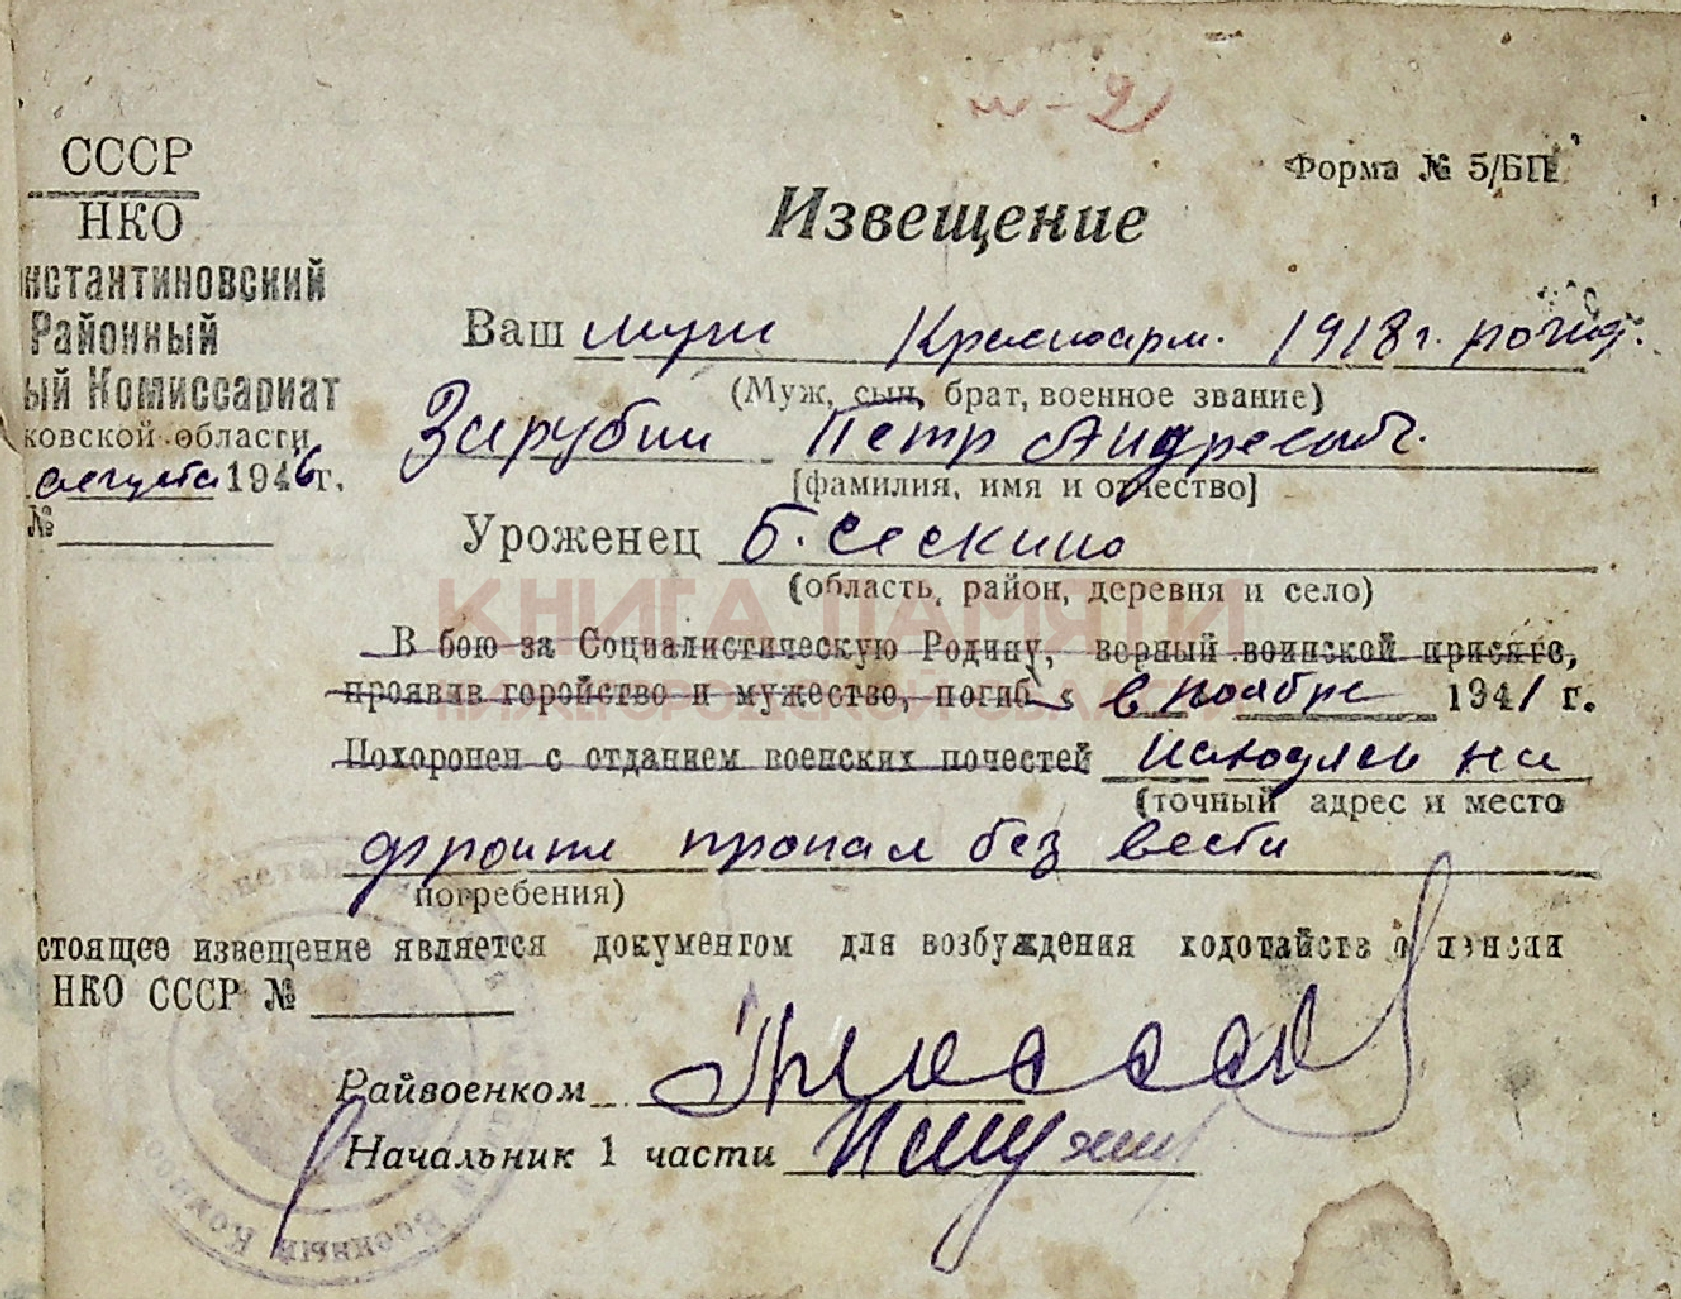 СССР
НКО
нстантиновский
Районный
ый Комиссариат
ковской области
августа 1946 г.
№
Форма № 5/БП
Извещение
Ваш муж Красноарм. 1918 г. рожд.
(Муж, сын, брат, военное звание)
Зарубин Петр Андреевич.
[фамилия, имя и отчество]
Уроженец Б. Сескино
(область, район, деревня и село)
КНИГА ПАМЯТИ
В бою за Социалистическую Родину, верный воинской присяге,
НИЖЕГОРОДСКОЙ ОБЛАСТИ
проявив геройство и мужество, погиб в ноябре 1941 г.
Похоронен с отданием воепских почестей находясь на
(точный адрес и место
фронте пропал без вести
погребения)
стоящее извещение является документом для возбуждения ходотайств о пенсии
НКО СССР №
Райвоенком
Начальник 1 части
Военный Ком